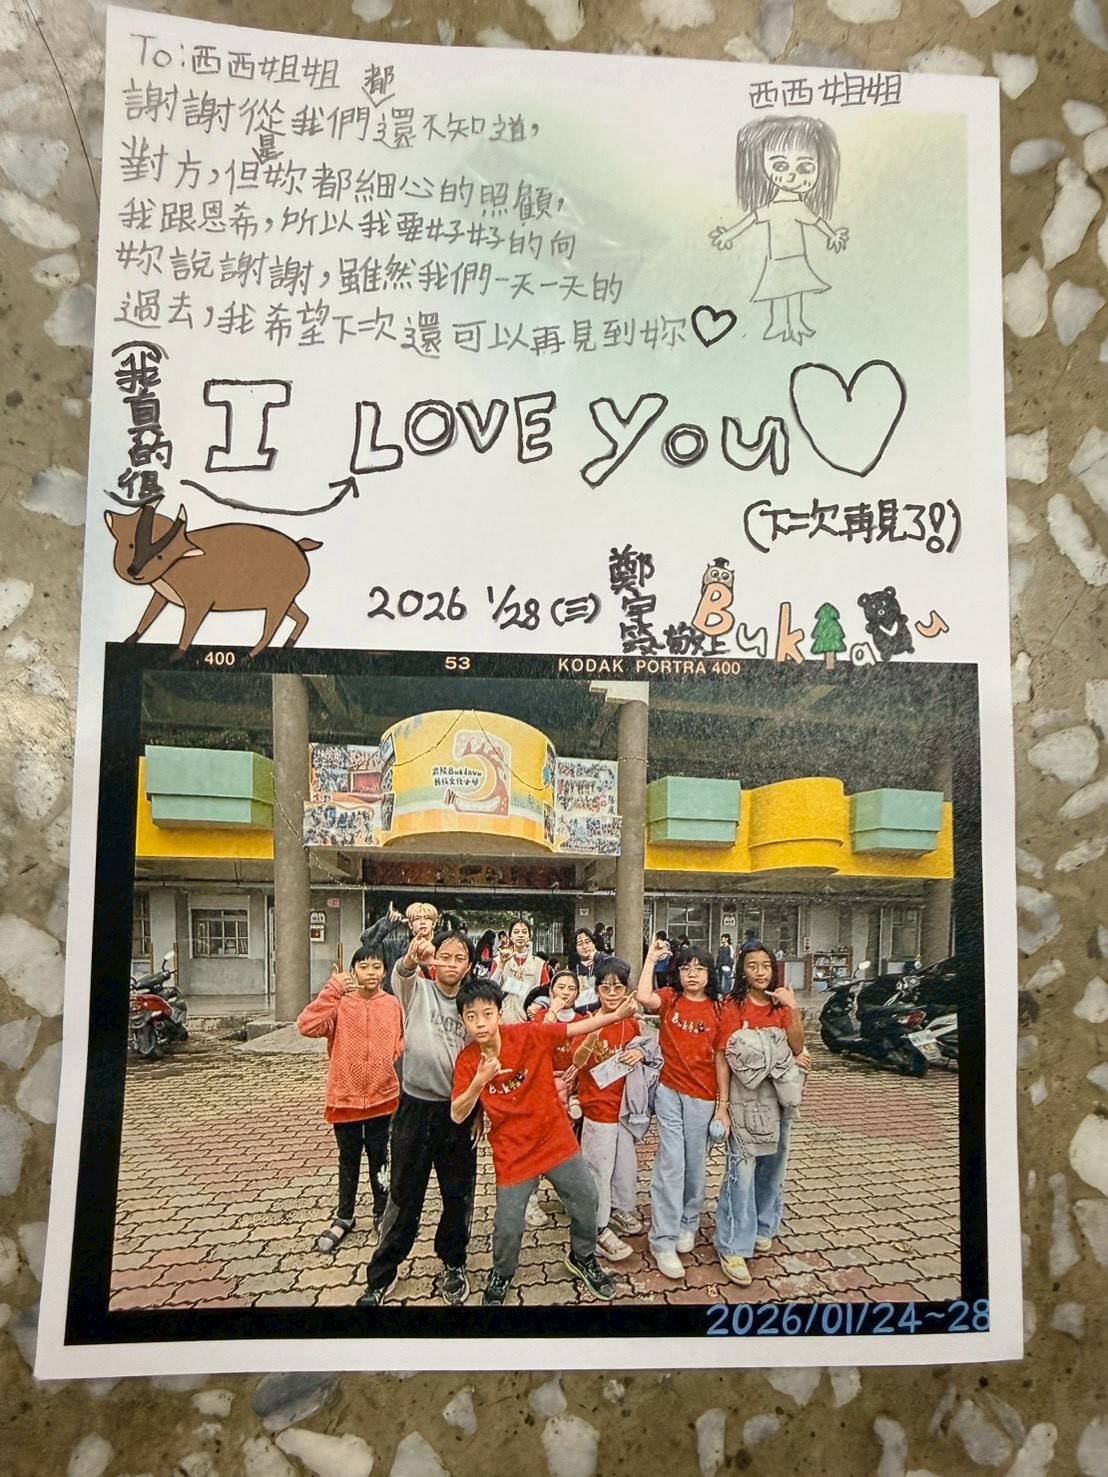 To:西西姐姐
謝謝從是我們都還不知道,
對方,但妳都細心的照顧,
我跟恩希,所以我要好好的向
妳說謝謝,雖然我們一天一天的
過去,我希望下次還可以再見到妳♡
西西姐姐
(我真的很)
I LOVE You♡
(下次再見了!)
2026 1/28(三)
鄭宇
敬上
Buklavu
400
53
KODAK PORTRA 400
武陵Buklavu
民族文化小學
2026/01/24~28